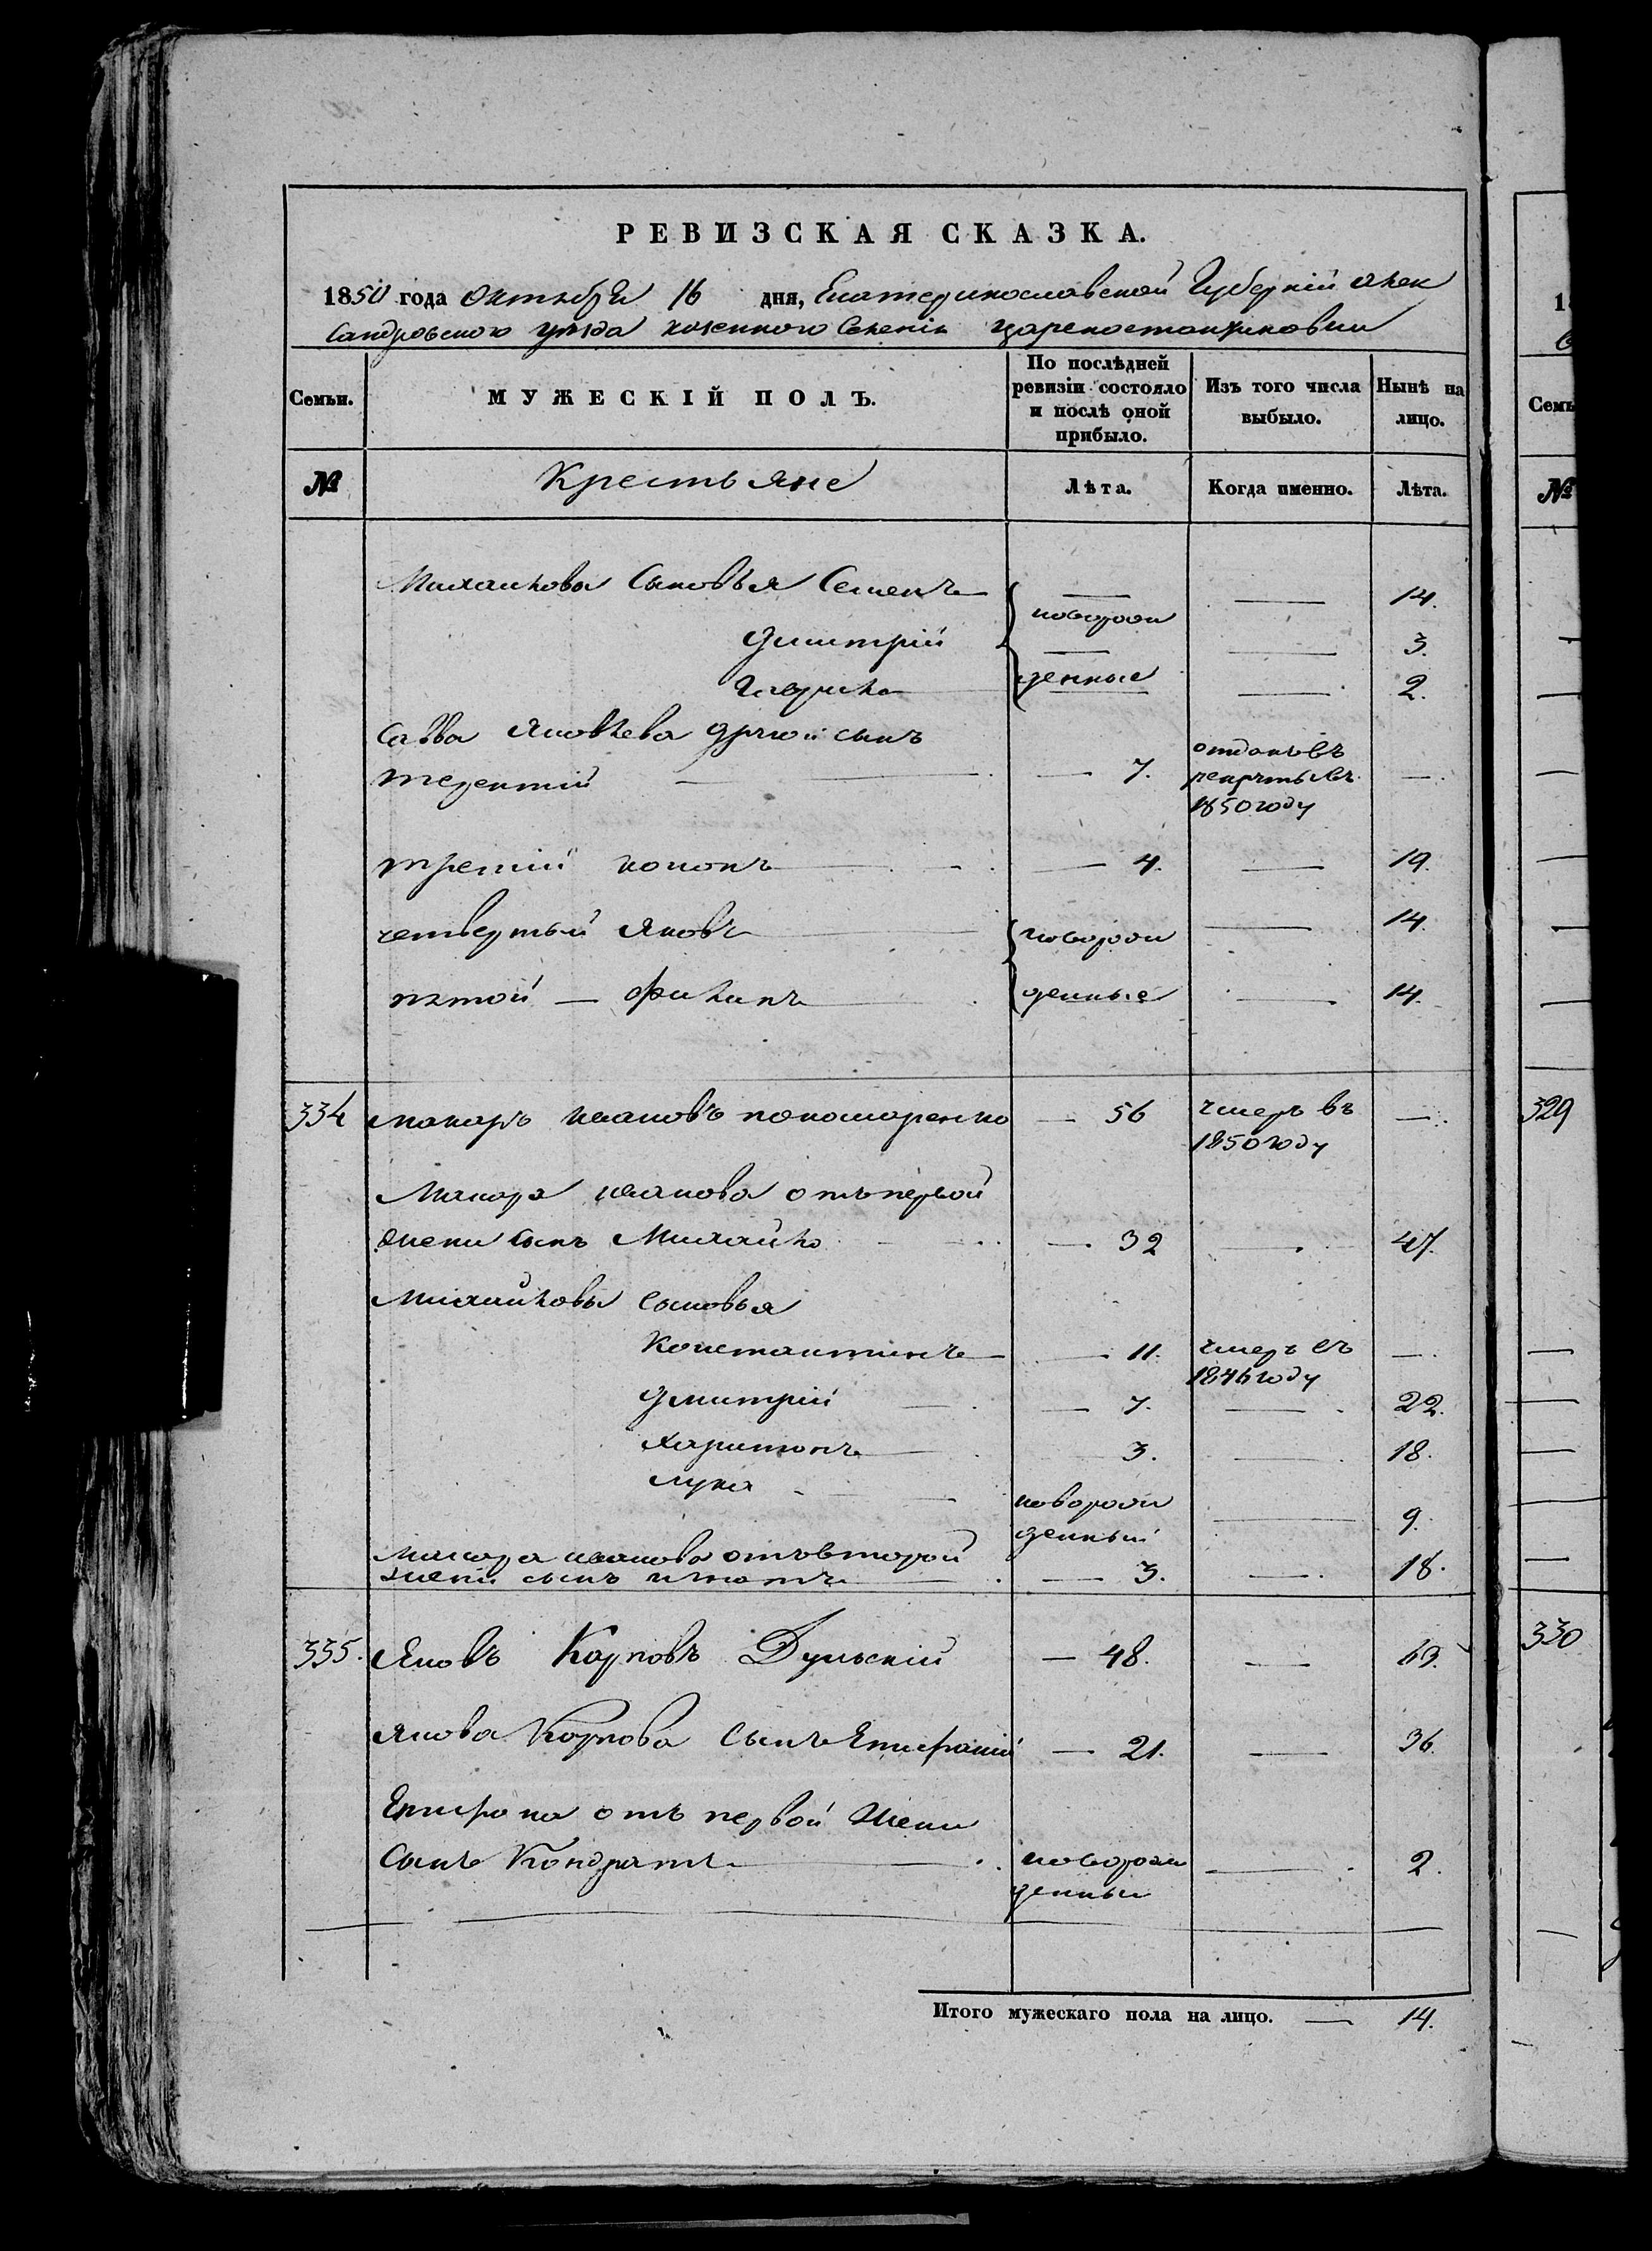 РЕВИЗСКАЯ СКАЗКА.
1850 года Октября 16 дня, Екатеринославской Губерніи Алек
сандровского уѣзда казенного Селенія Цареконстантиновки
Семьи. МУЖЕСКІЙ ПОЛЪ. По послѣдней ревизіи состояло и послѣ оной прибыло. Изъ того числа выбыло. Нынѣ на лицо.
№ Крестьяне Лѣта. Когда именно. Лѣта.
Михайлова Сыновья Семенъ — новорож — 14.
Дмитрій — — 3.
Гаврило — денные — 2.
Савва Яковлева другой сынъ
терентій — 7. отданъ въ рекруты въ 1850 году —
третій кононъ — 4. — 19.
четвертый Яковъ новорож — 14.
пятой — Филипъ денные — 14.
334 макаръ Ивановъ пономаренко — 56 умеръ въ 1850 году —
Макара иванова отъ первой
жени сынъ Михайло — 32 — 47.
Михайловы сыновья
Константинъ — 11. умеръ въ 1846 году —
Дмитрій — 7. — 22.
Харитонъ — 3. — 18.
лука — новорож денный — 9.
Макара иванова отъ второй
жени сынъ — 3. — 18.
335. Яковъ Карповъ Дульскій — 48. — 63.
Якова Карпова сынъ Епифаній — 21. — 36.
Епифана отъ первой жени
сынъ Кондратъ новорож денный — 2.
Итого мужескаго пола на лицо. — 14.
18
Семь
№
329
330